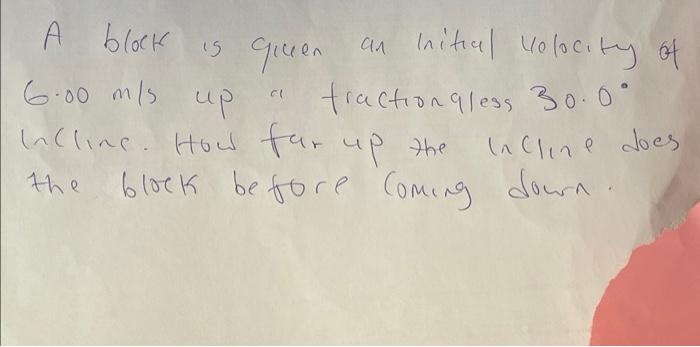 A block is given an initial volocity of
6.00 m/s up a fractionqless 30.0°
incline. How far up the incline does
the block before Coming down.